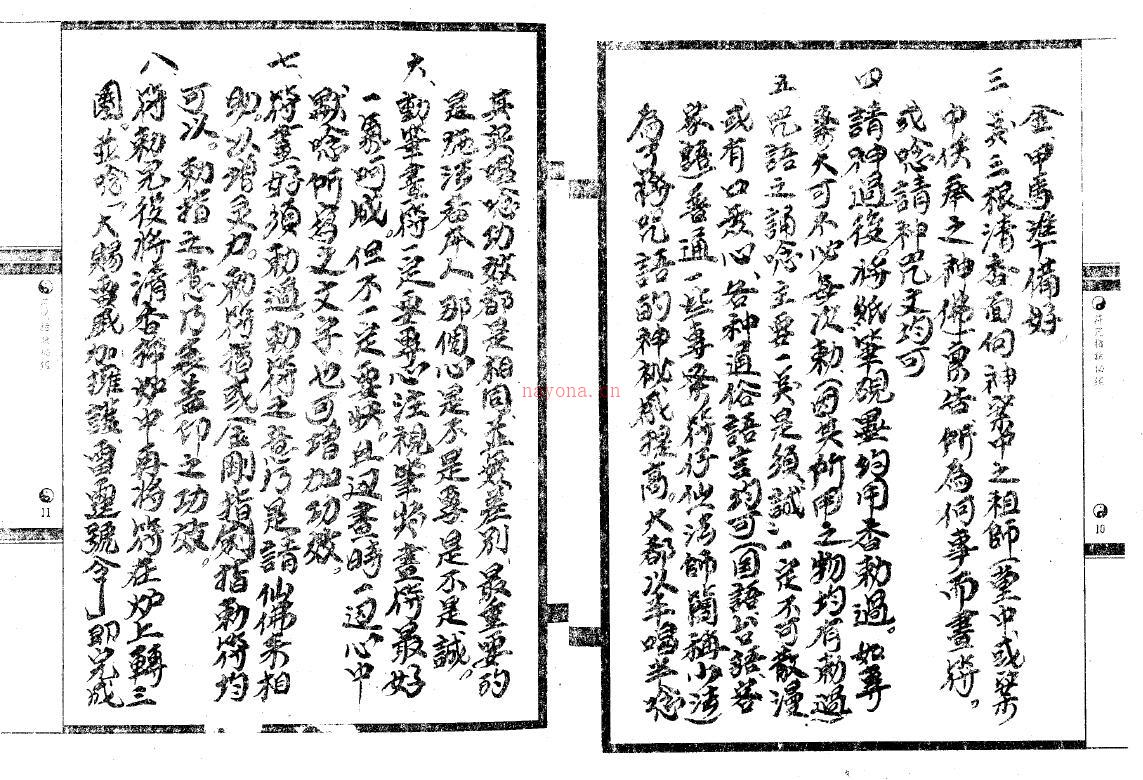 金、甲馬準備好。
三、英三根清香面向神案中之祖師(堂中或案
中供奉之神佛)稟告所為何事而畫符。
或唸請神咒文均可
四、請神過後將紙筆硯墨均用香勅過。如尋
幾天可不必每次勅(因其所用之物均有勅過)
五、咒語之誦唸主要一英是須誠心一定不可散漫
或有口無心、各神通俗語言均可(国語、台語、若
為了將咒語的神秘感提高大都以半唱半唸
其起唱唸功效都是相同並無差別、最重要的
是施法者本人、那個心是不是專是不是誠。
六、動筆畫符一定要專心注視筆將畫符最好
一氣呵成。但不一定要快。且边畫時一边心中
默唸所寫之文字、也可增加功效。
七、符畫好須勅過、勅符之意乃是請仙佛來相
助。以增灵力。初開指或(金剛指)劍指勅符均
可以。勅指之意乃表蓋印之功效。
八、符勅完後將清香插炉中再將符在炉上轉三
圈。並唸「大賜雷威加擁護、雷速號令」即完成
10
11
nayona.cn